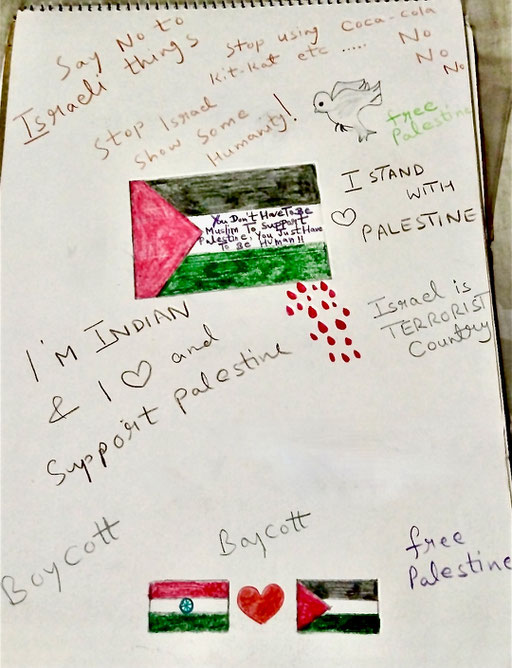 Say No to
Israeli things
Stop using Coca-cola
Kit-Kat etc .....
No
No
No
Stop Israel
Show Some
Humanity!
free
Palestine
I STAND
WITH
PALESTINE
You Don't Have To Be
Muslim To Support
Palestine, You Just Have
To Be Human!!
Israel is
TERRORIST
Country
I'M INDIAN
& I ♡ and
Support Palestine
Boycott
Boycott
free
Palestine